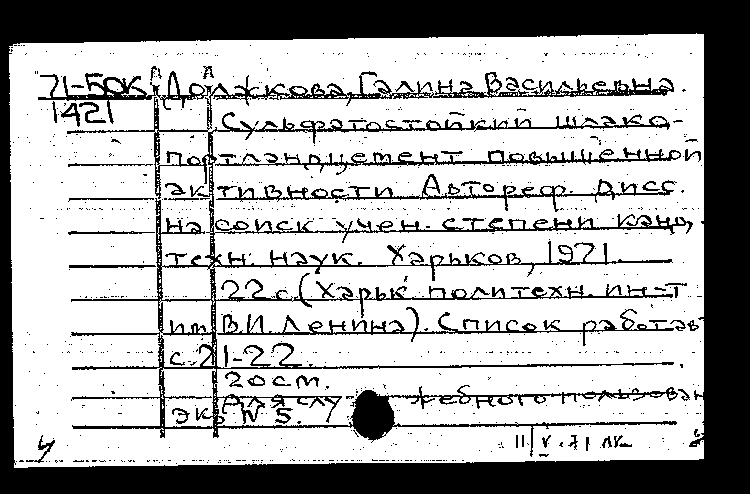 71-50к Должкова, Галина Васильевна.
1421
Сульфатостойкий шлако-
портландцемент повышенной
активности Автореф. дисс.
на соиск учен. степени канд.
техн. наук. Харьков, 1971.
22 с. (Харьк политехн. ин-т
им В.И. Ленина). Список работ ав
с. 21-22.
20 см.
Для слу жебного пользован
экз N 5.
11/V.71